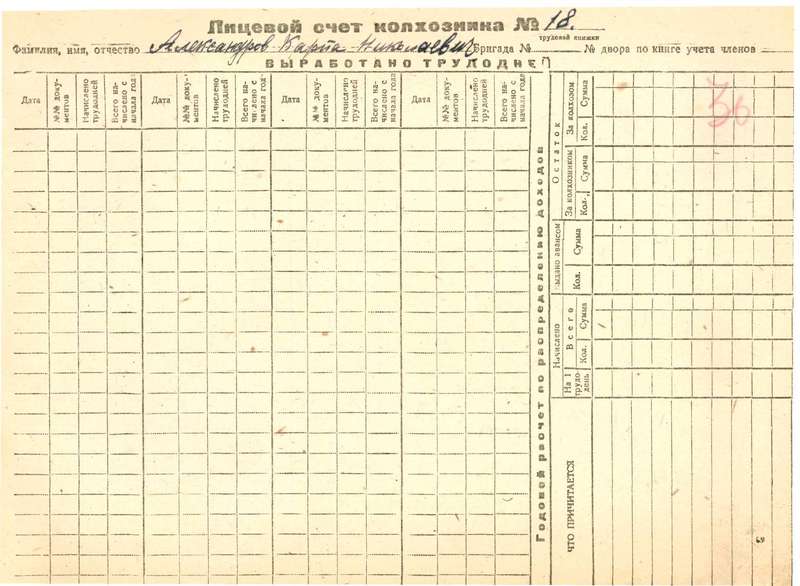 Лицевой счет колхозника № 18.
трудовой книжки
Фамилия, имя, отчество Александров Карп Николаевич Бригада № № двора по книге учета членов
ВЫРАБОТАНО ТРУДОДНЕЙ
Дата №№ доку-ментов Начислено трудодней Всего на-числено с начала года Дата №№ доку-ментов Начислено трудодней Всего на-числено с начала года Дата №№ доку-ментов Начислено трудодней Всего на-числено с начала года Дата №№ доку-ментов Начислено трудодней Всего на-числено с начала года
Годовой расчет по распределению доходов
ЧТО ПРИЧИТАЕТСЯ
Начислено
На 1 трудо-день
Всего
Кол. Сумма
выдано авансом
Кол. Сумма
Остаток
За колхозником
Кол. Сумма
За колхозом
Кол. Сумма
36